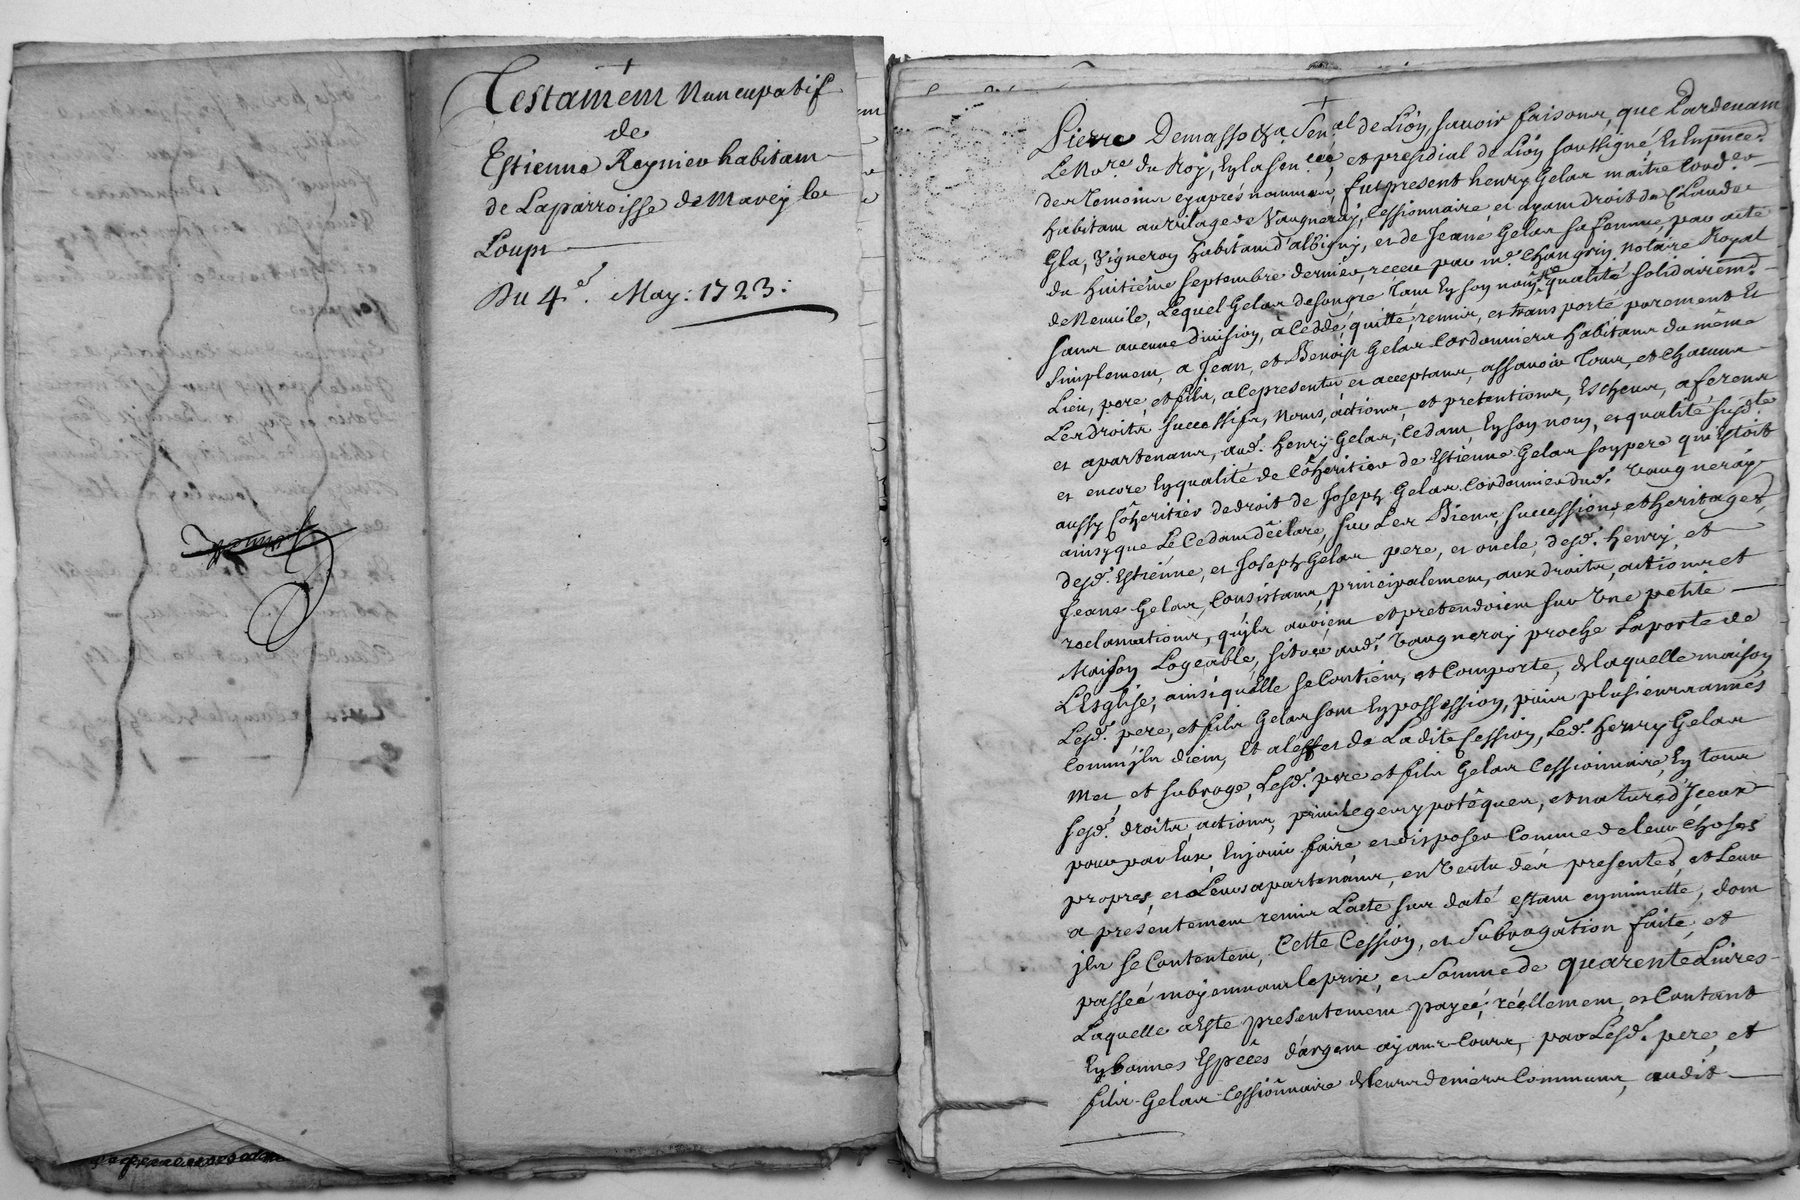 Testament Nuncupatif
de
Estienne Reynieu habitam
de Laparroisse de Marcy les
Loups
Du 4e. May: 1723:
Pierre Demasso &a Sen.al de Lion, sauoir faisons, que Pardeuam
Le No.re du Roy, En la Sen.cée, et presidial de Lion soussigné Et En pnce
des Temoins cy après nommés, fut present henry Gelas maitre Cord.er
habitam au vilage de Vaugneray, Cessionnaire et ayam droit de Claude
Gla, Vigneron habitam d'albigny, et de Jeane Gelas sa femme, par acte
du huitiême septembre dernier, receu par me. Changrin, notaire Royal
de Neuuile, Lequel Gelas de son gre Tam En son nom, qualité, solidairem.t
sans aucune diuision, à Cedde, quitte, remis, et transporté, purement Et
Simplement, a Jean, et Benoist Gelas Cordonniers habitans du même
Lieu, pere, et fils, a Ce presents et acceptans, assauoir Tous, et chacuns
Les droits successifs, noms, actions, et pretentions, Escheus, aferens
et apartenans, aud. henry Gelas, Cedam, En son nom, et qualité, susd.te
et encore En qualité de Côheritier de Estienne Gelas son pere qui Estoit
aussy Côheritier de droit de Joseph Gelas Cordonnier dud. Vaugneray
ainsy que Le Cedam déclare, sur Les Biens, successions, et heritages,
desd. Estienne, et Joseph Gelas pere, et oncle, desd. henry, et
Jeane Gelas, Consistans, principalement, aux droits, actions et
reclamations, qu'jls auoient et pretendoient sur Vne petite
Maison Logeable, sitüée aud. Vaugneray proche Laporte de
L'Esglise, ainsi quElle se Contient, et Comporte, de laquelle maison
Lesd. pere, et fils Gelas sont En possession, puis plusieurs années
Comm'jls dient, Et a l'effet de La dite Cession, Led. henry Gelas
Met, et subroge, Lesd. pere et fils Gelas Cessionnaire, En tous
sesd. droits, actions, priuileges ypotêques, et nature d'jceux
pour par Eux, En jouir faire, et disposer Comme de leur choses
propres, et a Leurs apartenans, en Vertu des presentes, et Leur
a presentement remis Lacte sus daté estam en minutte, dom
jls se Contentent, Cette Cession, et Subrogation faite, et
passeé moyennant le prix, et Somme de quarente Liures
Laquelle a Este presentement payeé, réellement, et Contant
En bonnes Especês d'argent ayans Cours, par Lesd. pere, et
fils Gelas Cessiônnaire de leurs deniers Communs, audit